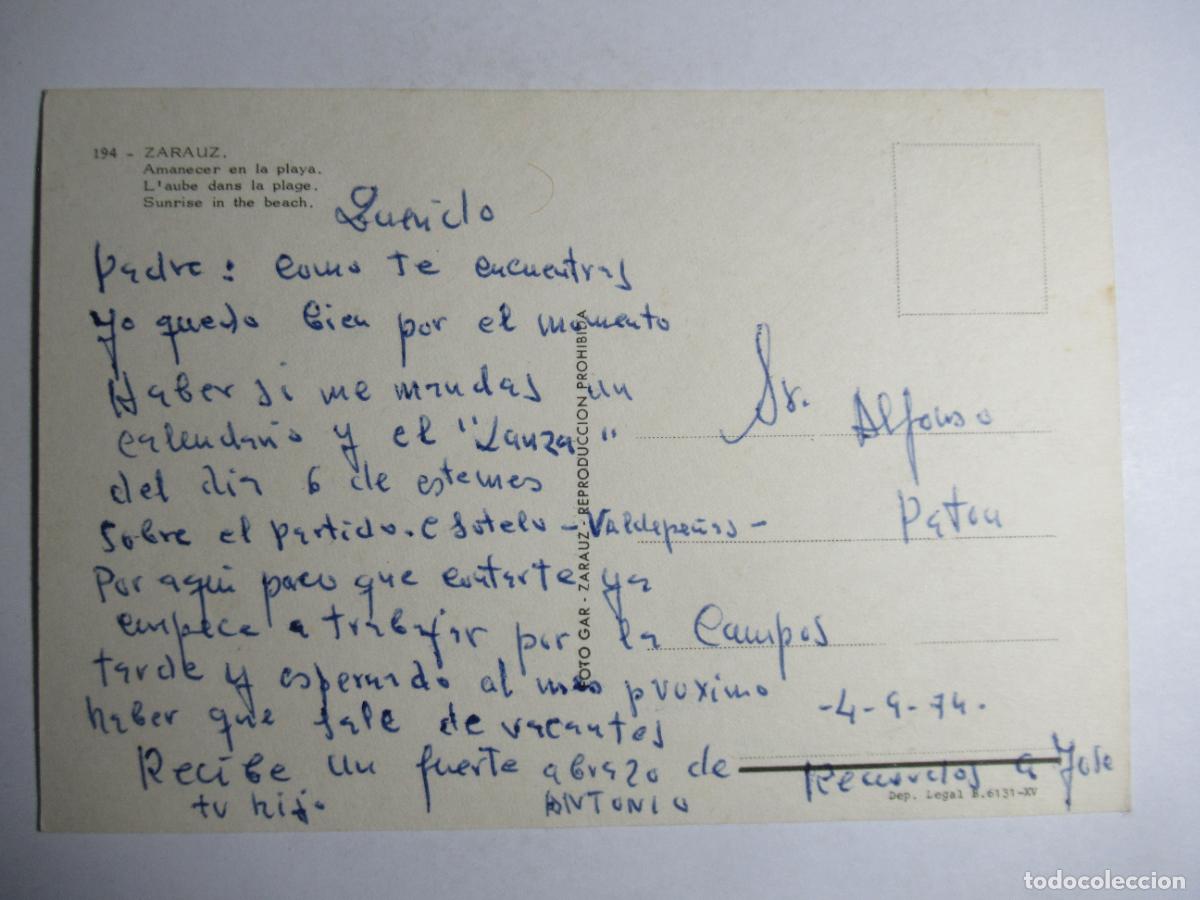 194 - ZARAUZ.
Amanecer en la playa.
L'aube dans la plage.
Sunrise in the beach.
Querido
padre: como te encuentras
Yo quedo bien por el momento
Haber si me mandas un
calendario y el "Lanza"
del dia 6 de estemes
Sobre el partido. C Sotelo - Valdepeñas -
Por aqui poco que contarte ya
empece a trabajar por la
tarde y esperando al mes proximo
haber que sale de vacantes
Recibe un fuerte abrazo de
tu hijo ANTONIO
FOTO GAR - ZARAUZ - REPRODUCCION PROHIBIDA
Sr. Alfonso
Paton
Campos
-4-9-74.
Recuerdos a Jose
Dep. Legal B.6131-XV
todocoleccion